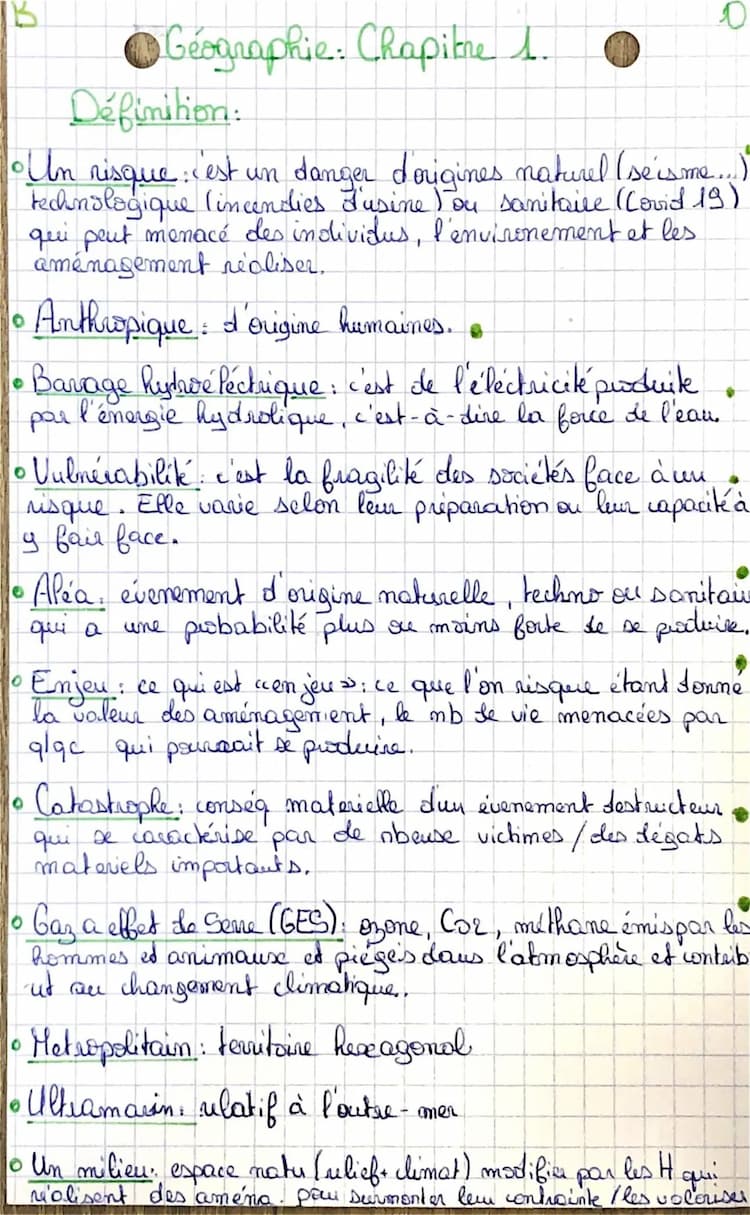 Géographie : Chapitre 1.
Définition :
Un risque : c'est un danger d'origines naturel (séisme...)
technologique (incendies d'usine) ou sanitaire (Covid 19)
qui peut menacé des individus, l'environement et les
aménagement réaliser.
Anthropique : d'origine humaines.
Barrage hydroéléctrique : c'est de l'éléctricité produite
par l'énergie hydrolique, c'est-à-dire la force de l'eau.
Vulnérabilité : c'est la fragilité des sociétés face à un
risque. Elle varie selon leur préparation ou leur capacité à
y fair face.
Aléa : évenement d'origine naturelle, techno ou sanitair
qui a une probabilité plus ou moins forte de se produire.
Enjeu : ce qui est «en jeu» : ce que l'on risque étant donné
la valeur des aménagement, le nb de vie menacées par
q/qc qui pourrait se produire.
Catastrophe : conséq materielle d'un évenement destructeur
qui se caractérise par de nbeuse victimes / des dégats
materiels importants.
Gaz a effet de Serre (GES) : ozone, Co2, méthane émis par les
hommes et animaux et piégés dans l'atmosphère et contrib
ut au changement climatique.
Metropolitain : territoire hexagonal
Ultramarin : relatif à l'outre-mer
Un milieu : espace natu (relief + climat) modifier par les H qui
réalisent des aména. pour surmonter leur contrainte / les valoriser